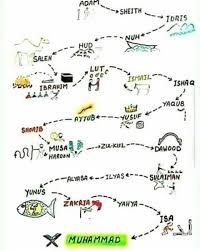 ADAM
SHEITH
IDRIS
NUH
HUD
SALEH
LUT
IBRAHIM
ISMAIL
ISHAQ
YAQUB
YUSUF
AYYUB
SHOAIB
MUSA
HAROON
ZUL-KIFL
DAWOOD
SULAIMAN
ILYAS
ALYASA
YUNUS
ZAKRIA
YAHYA
ISA
MUHAMMAD